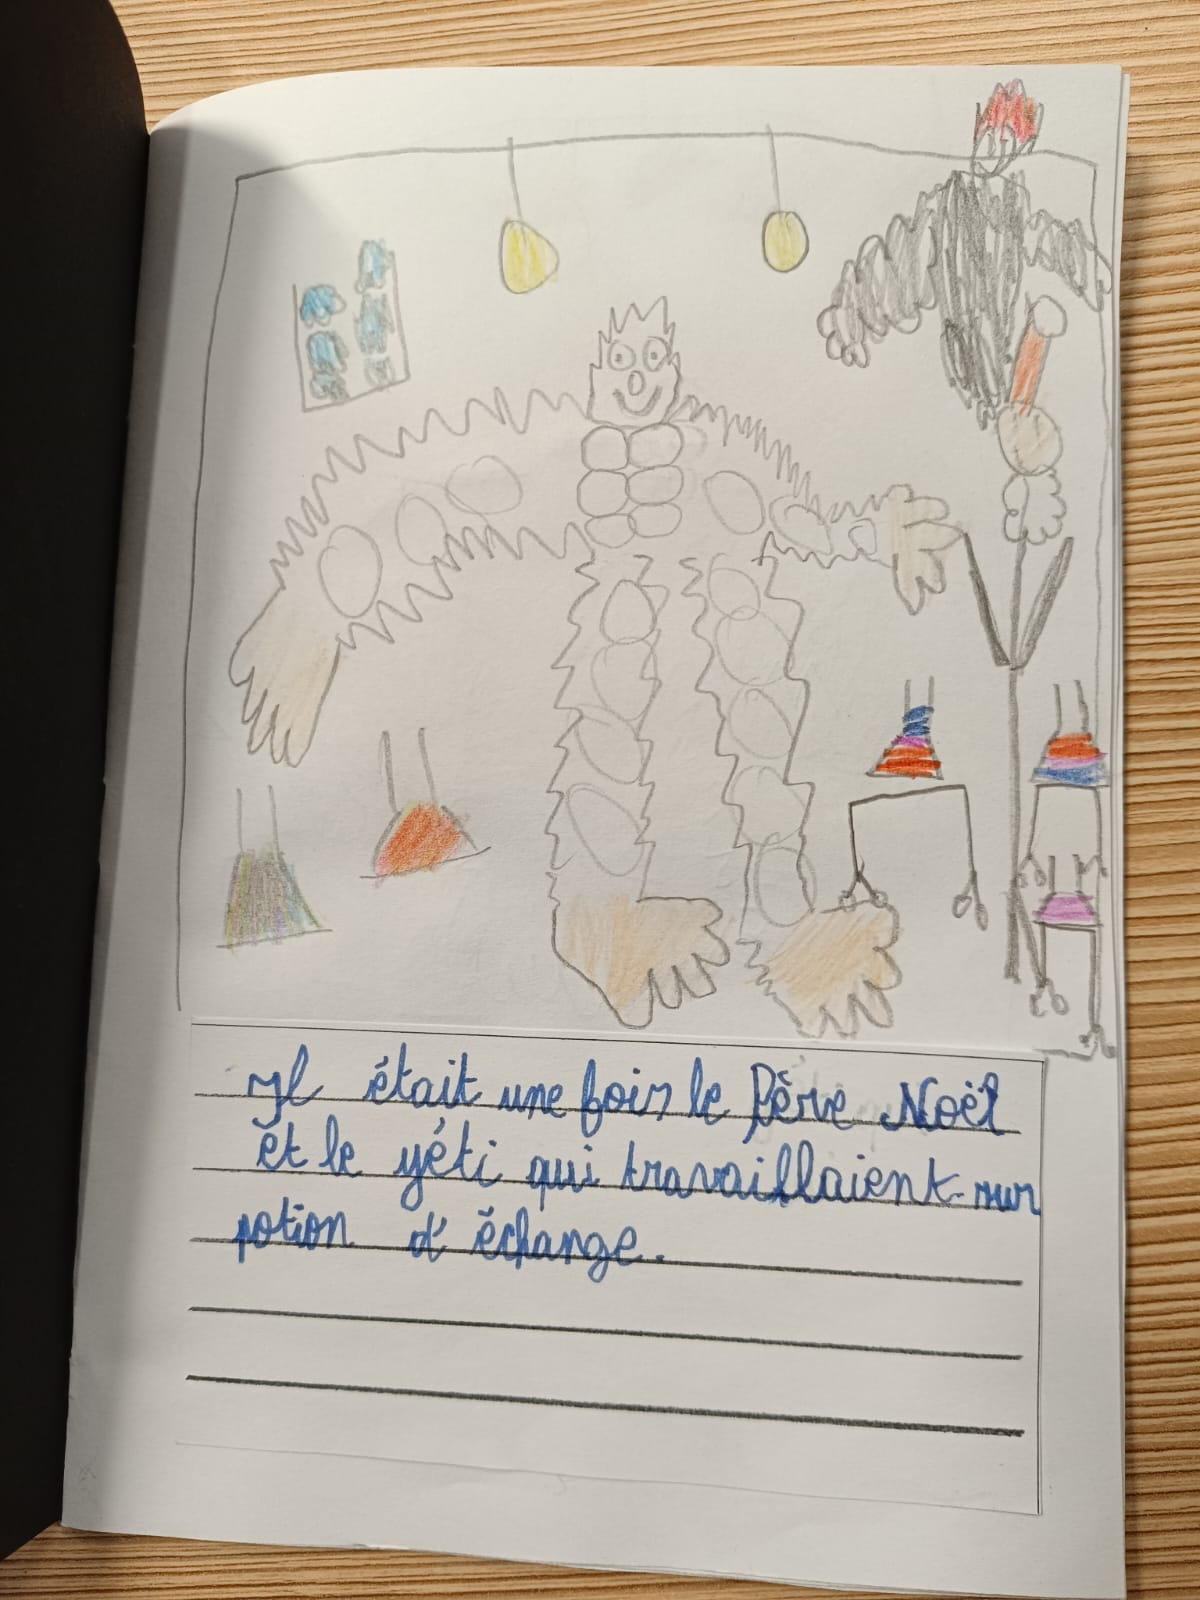 Il était une fois le Père Noël
et le yéti qui travaillaient sur
potion d'échange.